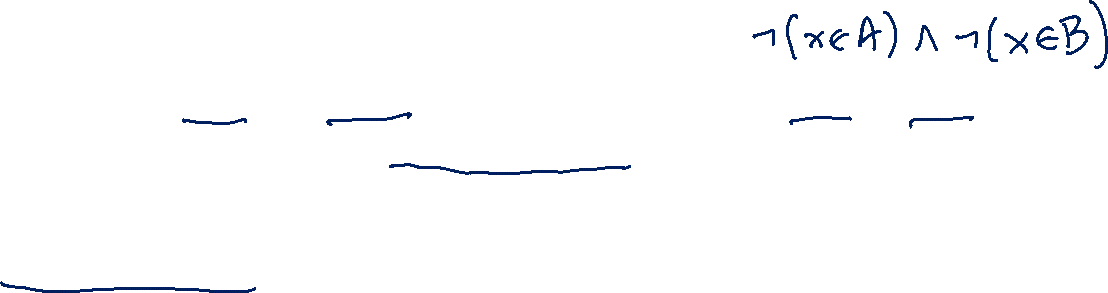 ¬(x∈A) ∧ ¬(x∈B)